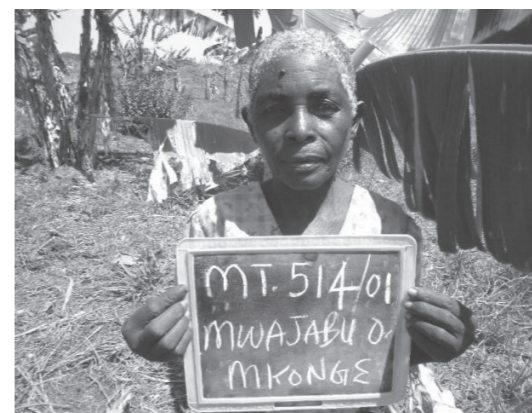 MT. 514/01
MWAJABU O.
MKONGE